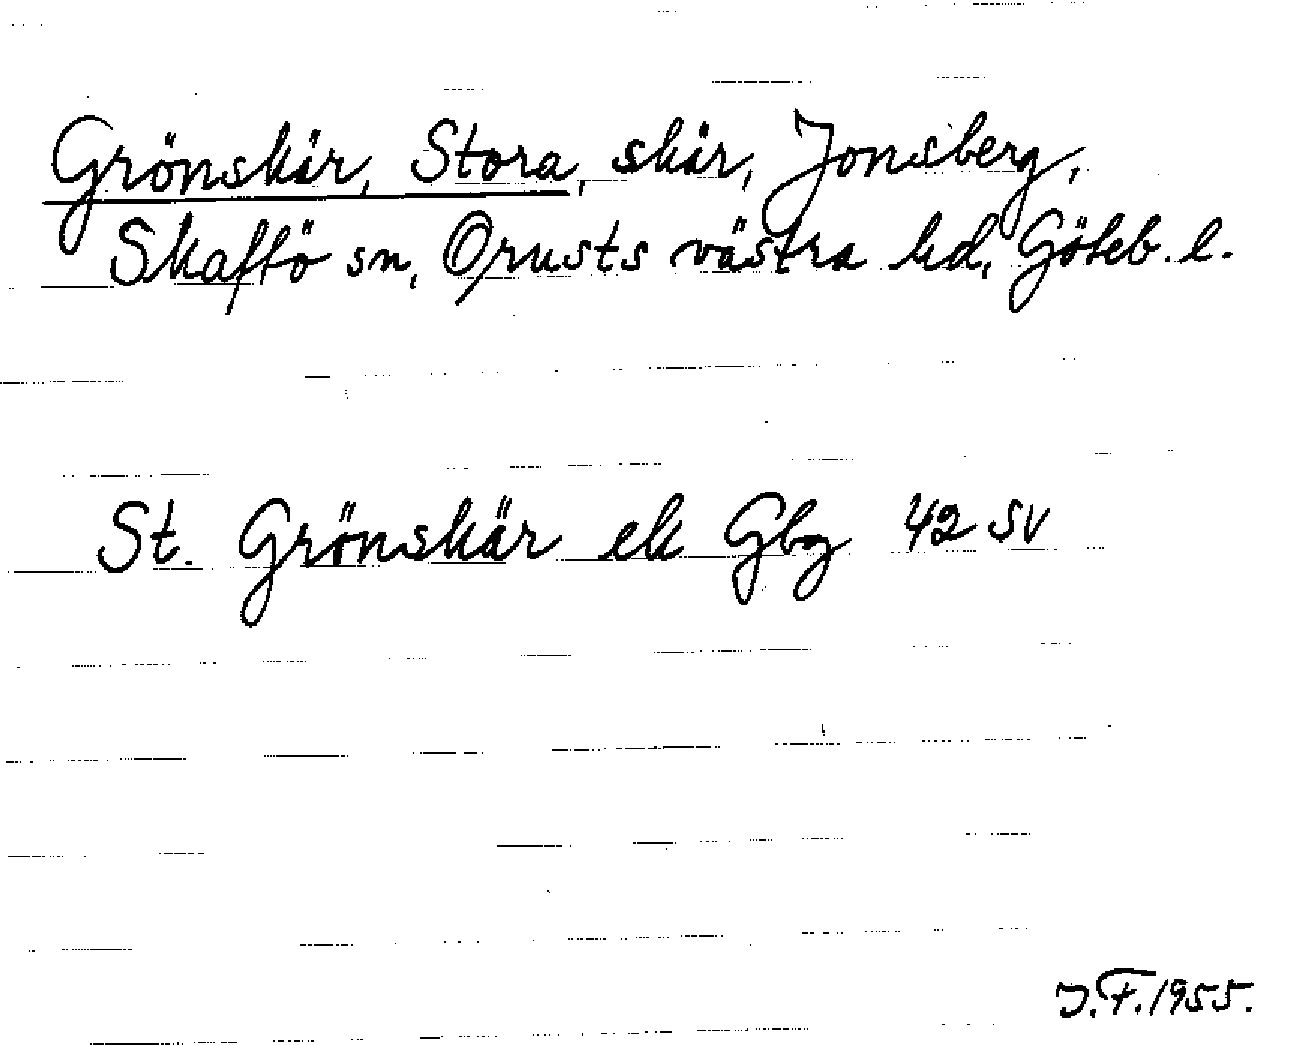 Grönskär, Stora, skär, Jonsberg,
Skaftö sn, Orusts västra hd, Göteb. l.
St. Grönskär ek Gbg 42 SV
J.F. 1955.